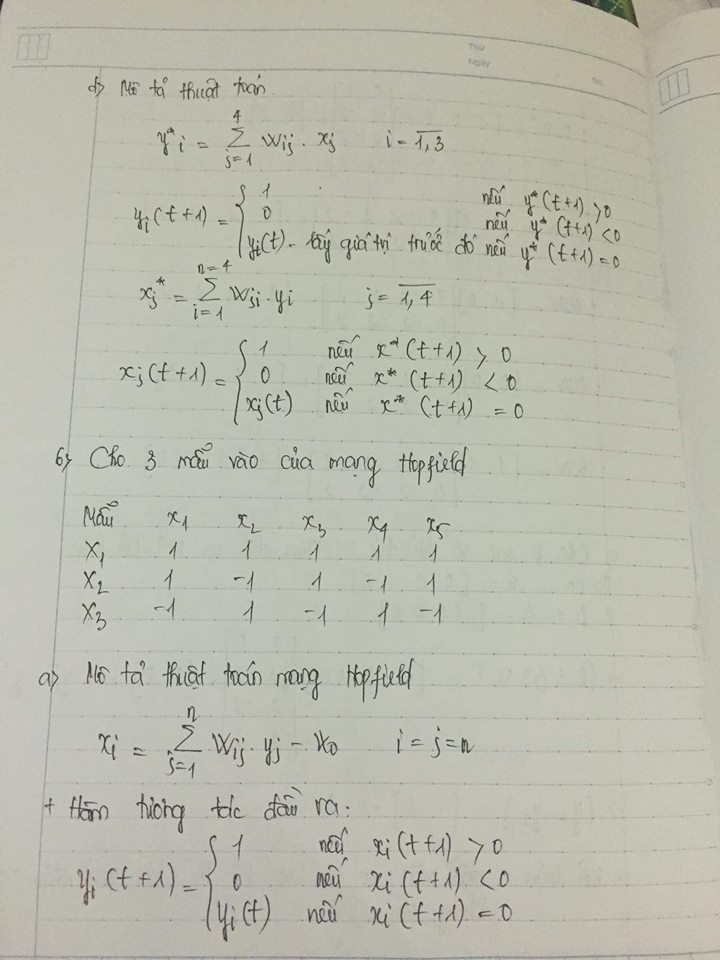 Thứ
Ngày
No.
d) Mô tả thuật toán
y*i = Σ_{j=1}^{4} Wij · xj    i = \overline{1,3}
yi(t+1) = { 1    nếu y*(t+1) > 0
0    nếu y*(t+1) < 0
yi(t) - lấy giá trị trước đó nếu y*(t+1) = 0
xj* = Σ_{i=1}^{n=4} Wji · yi    j = \overline{1,4}
xj(t+1) = { 1    nếu x*(t+1) > 0
0    nếu x*(t+1) < 0
xj(t)    nếu x*(t+1) = 0
6) Cho 3 mẫu vào của mạng Hopfield
Mẫu    x1    x2    x3    x4    x5
X1    1    1    1    1    1
X2    1    -1    1    -1    1
X3    -1    1    -1    1    -1
a) Mô tả thuật toán mạng Hopfield
xi = Σ_{j=1}^{n} Wij · yj -    i = j = n
+ Hàm tương tác đầu ra:
yi(t+1) = { 1    nếu xi(t+1) > 0
0    nếu xi(t+1) < 0
yi(t)    nếu xi(t+1) = 0